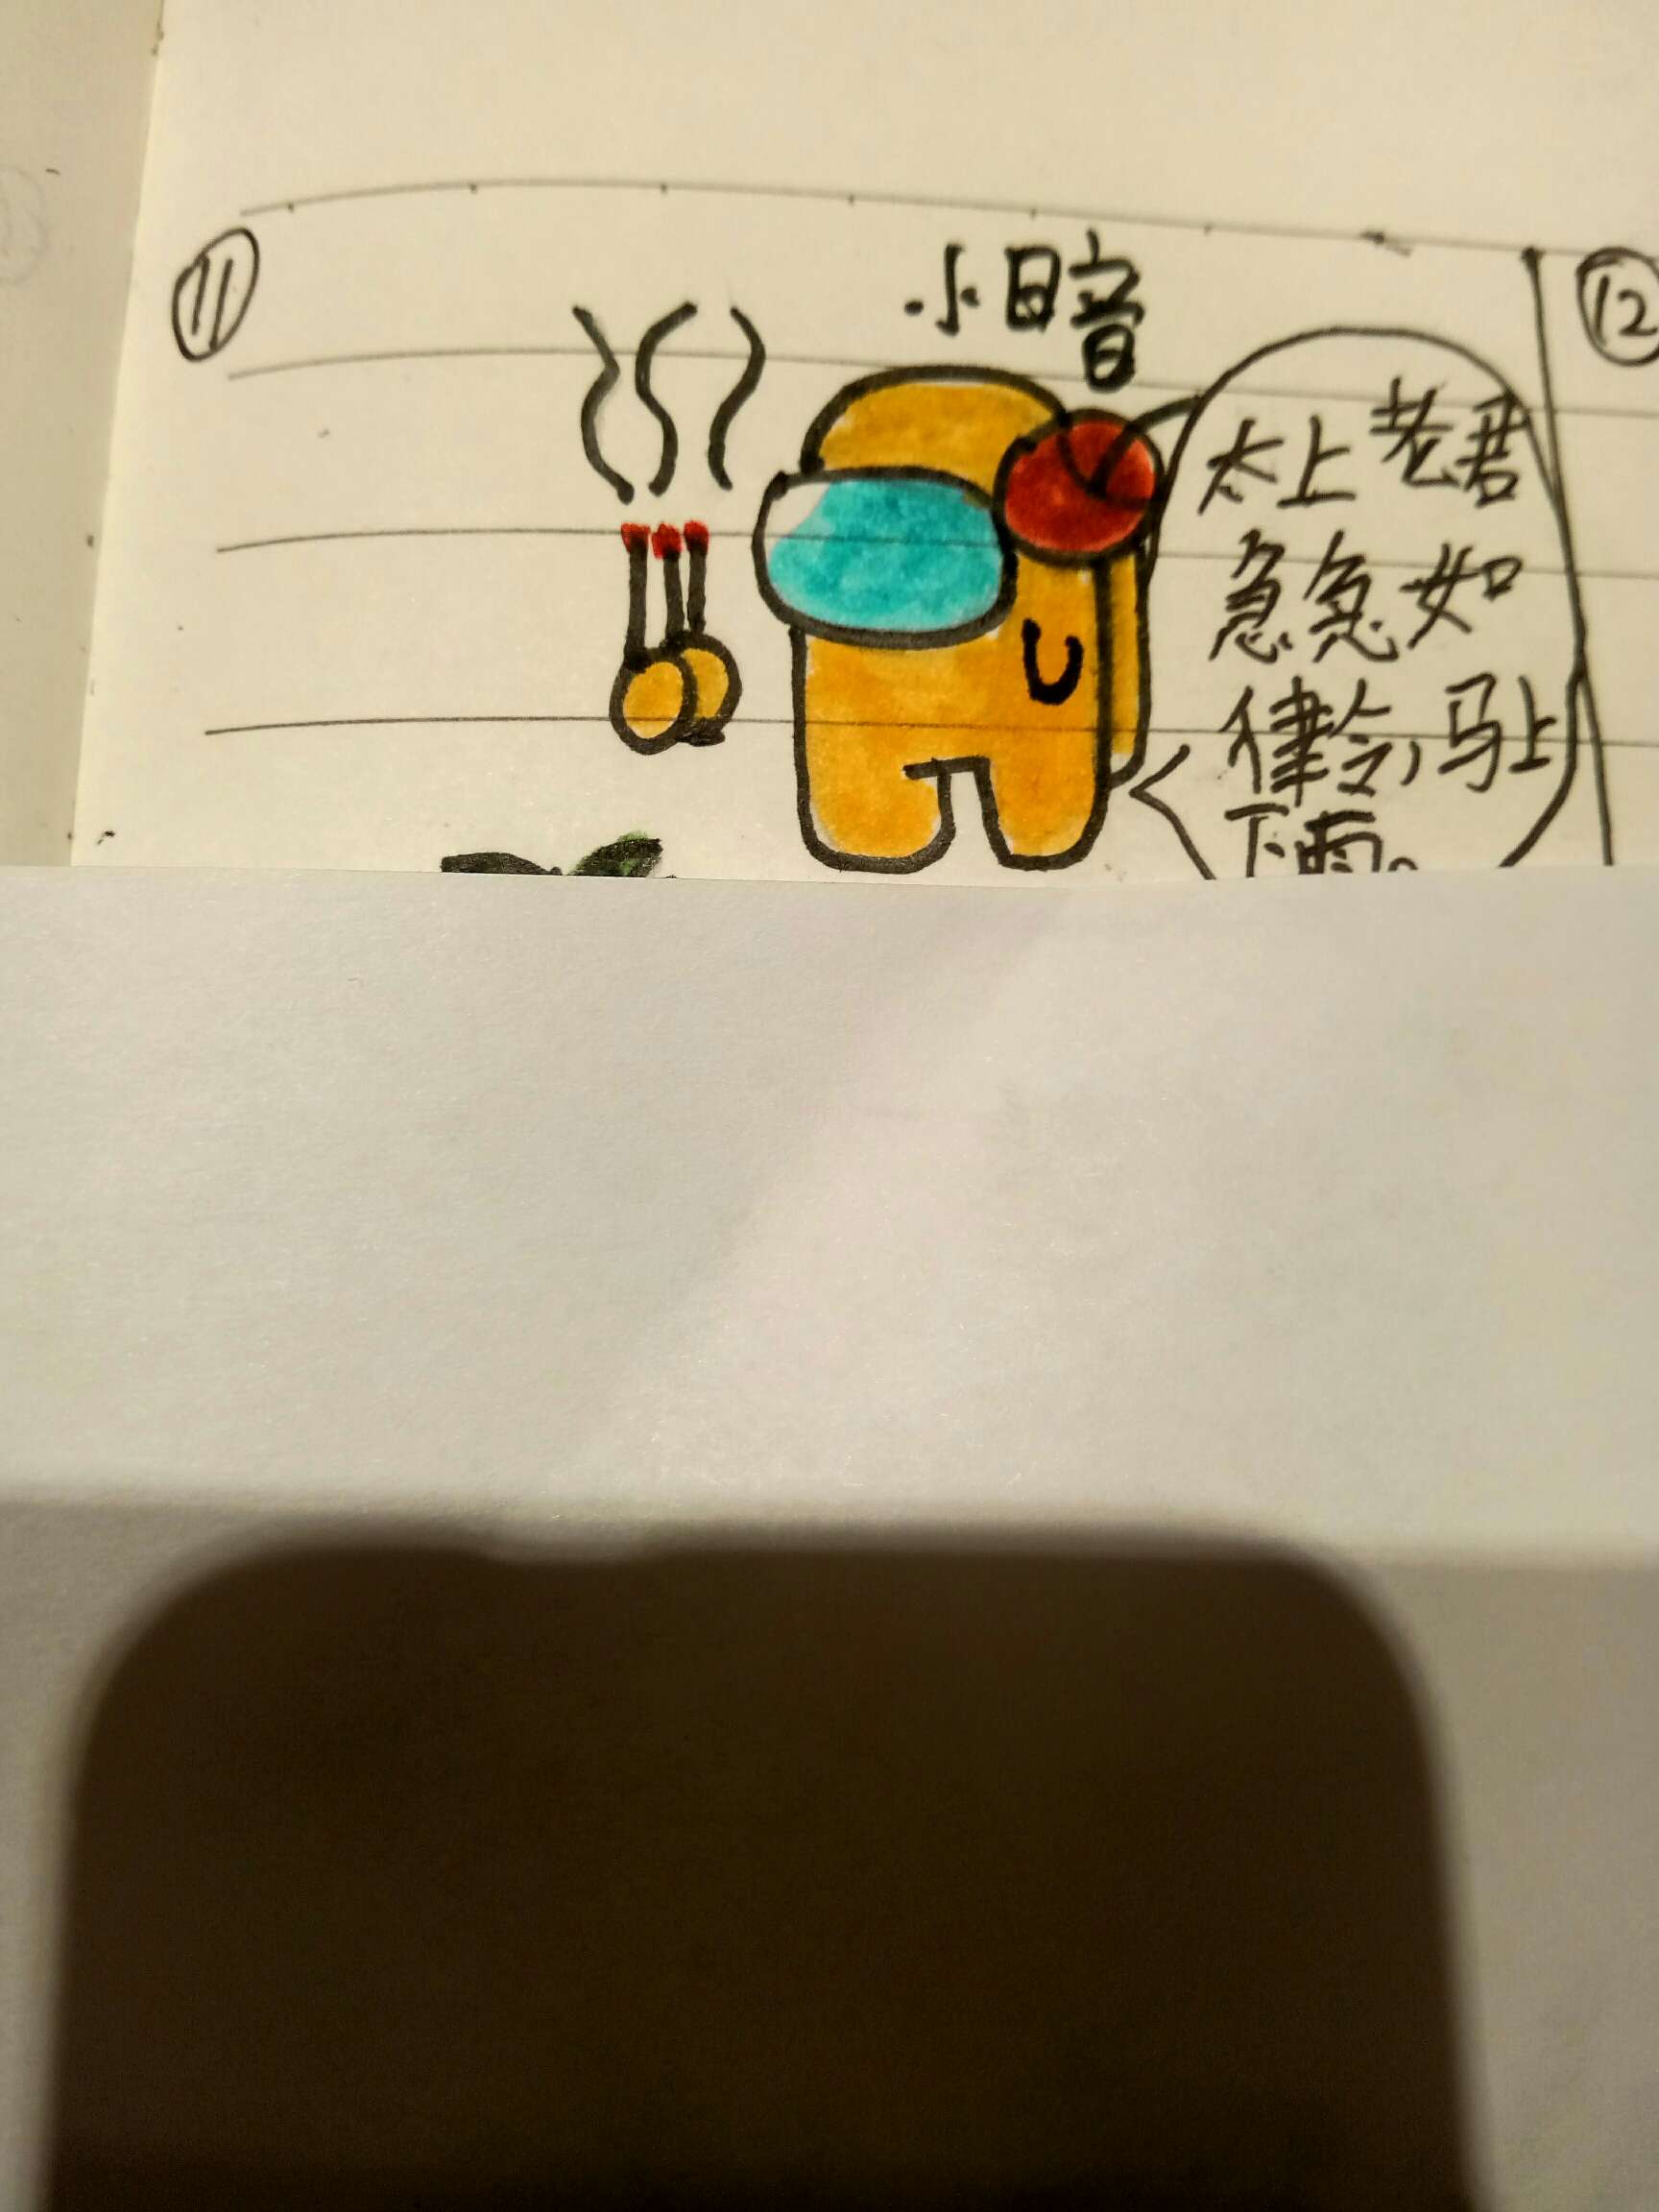 ⑪
小暗
⑫
太上老君
急急如
律令,马上
下雨。